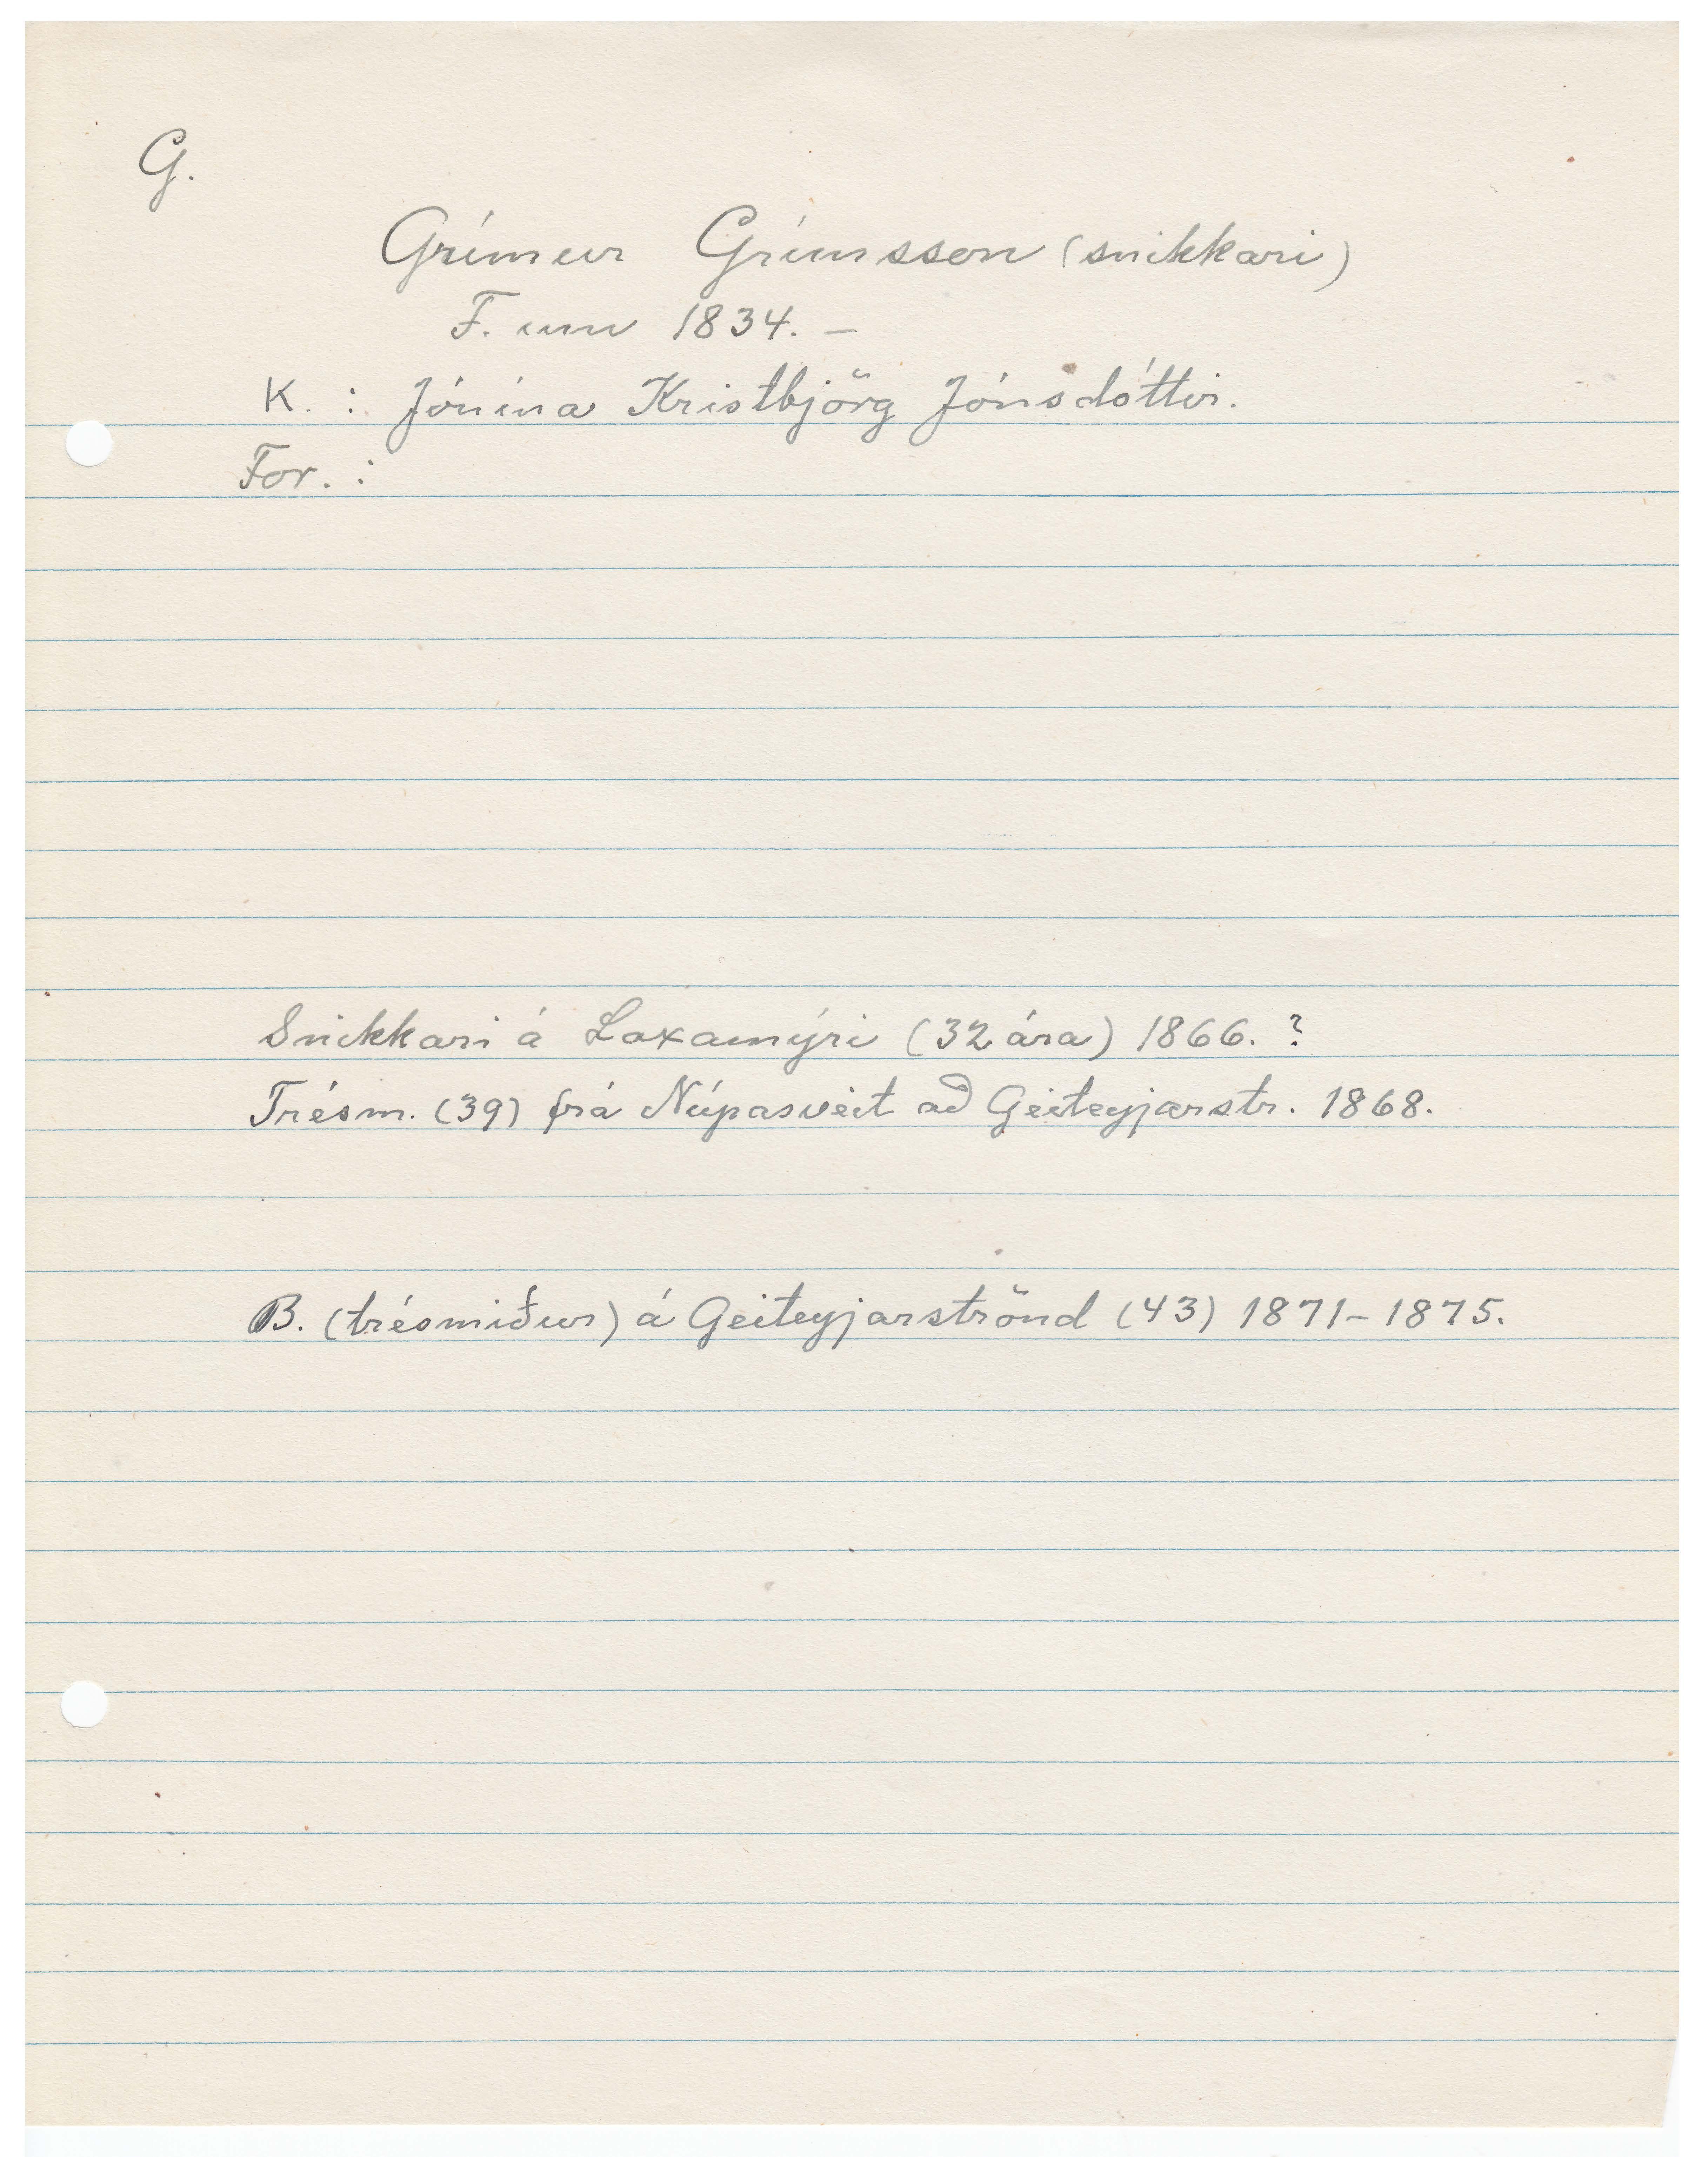 G.
Grímur Grímsson (snikkari)
F. um 1834. –
K. : Jónína Kristbjörg Jónsdóttir.
For. :
Snikkari á Laxamýri (32 ára) 1866. ?
Trésm. (39) frá Núpasveit að Geiteyjarstr. 1868.
B. (trésmiður) á Geiteyjarströnd (43) 1871–1875.